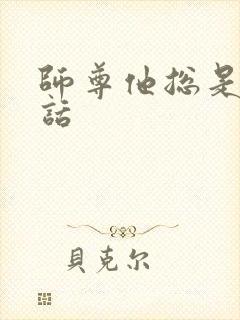 師尊他總是
話
貝克尔